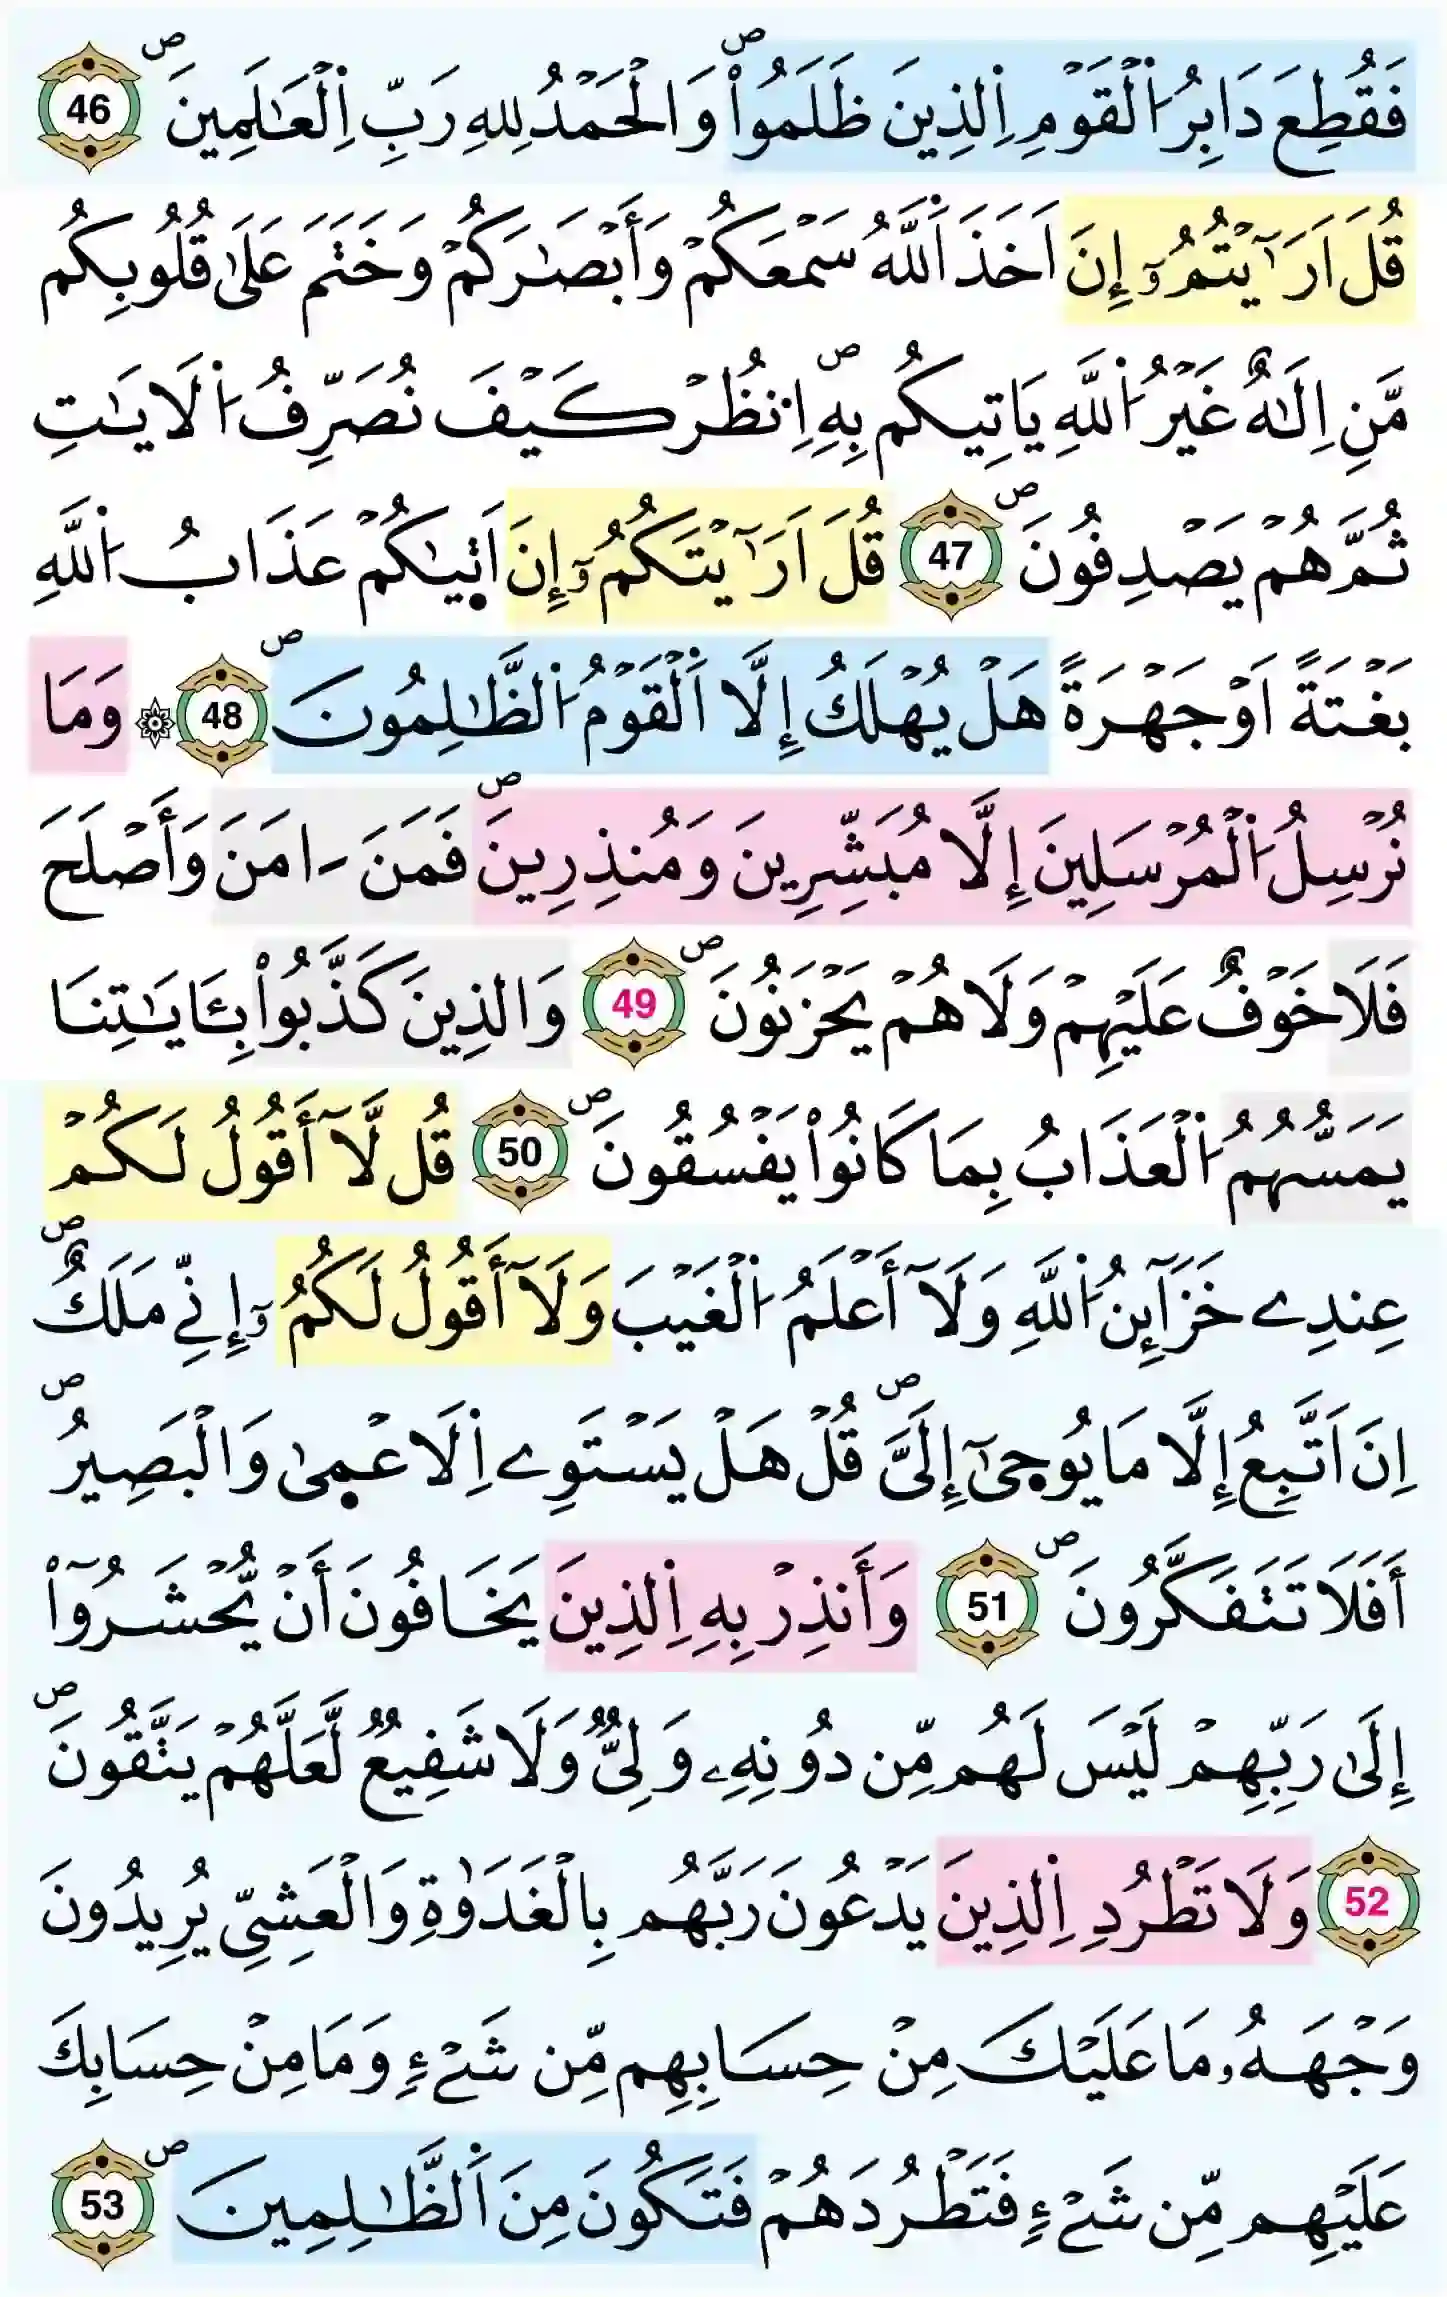 فَقُطِعَ دَابِرُ اُ۬لْقَوْمِ اِ۬لذِينَ ظَلَمُواْۖ وَالْحَمْدُ لِلهِ رَبِّ اِ۬لْعَٰلَمِينَۖ 46
قُلَ اَرَٰٓيْتُمُۥٓ إِنَ اَخَذَ اَ۬للَّهُ سَمْعَكُمْ وَأَبْصَٰرَكُمْ وَخَتَمَ عَلَىٰ قُلُوبِكُم
مَّنِ اِلَٰهٌ غَيْرُ اُ۬للَّهِ يَاتِيكُم بِهِۖ اِ۟نظُرْ كَيْفَ نُصَرِّفُ اُ۬لَايَٰتِ
ثُمَّ هُمْ يَصْدِفُونَۖ 47 قُلَ اَرَٰٓيْتَكُمُۥٓ إِنَ اَت۪يٰكُمْ عَذَابُ اُ۬للَّهِ
بَغْتَةً اَوْ جَهْرَةً هَلْ يُهْلَكُ إِلَّا اَ۬لْقَوْمُ اُ۬لظَّٰلِمُونَۖ 48 ۞ وَمَا
نُرْسِلُ اُ۬لْمُرْسَلِينَ إِلَّا مُبَشِّرِينَ وَمُنذِرِينَۖ فَمَنَ ـ امَنَ وَأَصْلَحَ
فَلَا خَوْفٌ عَلَيْهِمْ وَلَا هُمْ يَحْزَنُونَۖ 49 وَالذِينَ كَذَّبُواْ بِـَٔايَٰتِنَا
يَمَسُّهُمُ اُ۬لْعَذَابُ بِمَا كَانُواْ يَفْسُقُونَۖ 50 قُل لَّآ أَقُولُ لَكُمْ
عِندِے خَزَآئِنُ اُ۬للَّهِ وَلَآ أَعْلَمُ اُ۬لْغَيْبَ وَلَآ أَقُولُ لَكُمُۥٓ إِنِّے مَلَكٌۖ
اِنَ اَتَّبِعُ إِلَّا مَا يُوح۪ىٰٓ إِلَيَّۖ قُلْ هَلْ يَسْتَوِے اِ۬لَاعْم۪ىٰ وَالْبَصِيرُۖ
أَفَلَا تَتَفَكَّرُونَۖ 51 وَأَنذِرْ بِهِ اِ۬لذِينَ يَخَافُونَ أَنْ يُّحْشَرُوٓاْ
إِلَىٰ رَبِّهِمْ لَيْسَ لَهُم مِّن دُونِهِۦ وَلِيٌّ وَلَا شَفِيعٌ لَّعَلَّهُمْ يَتَّقُونَۖ
52 وَلَا تَطْرُدِ اِ۬لذِينَ يَدْعُونَ رَبَّهُم بِالْغَدَوٰةِ وَالْعَشِيِّ يُرِيدُونَ
وَجْهَهُۥ مَا عَلَيْكَ مِنْ حِسَابِهِم مِّن شَےْءٖ وَمَا مِنْ حِسَابِكَ
عَلَيْهِم مِّن شَےْءٖ فَتَطْرُدَهُمْ فَتَكُونَ مِنَ اَ۬لظَّٰلِمِينَۖ 53